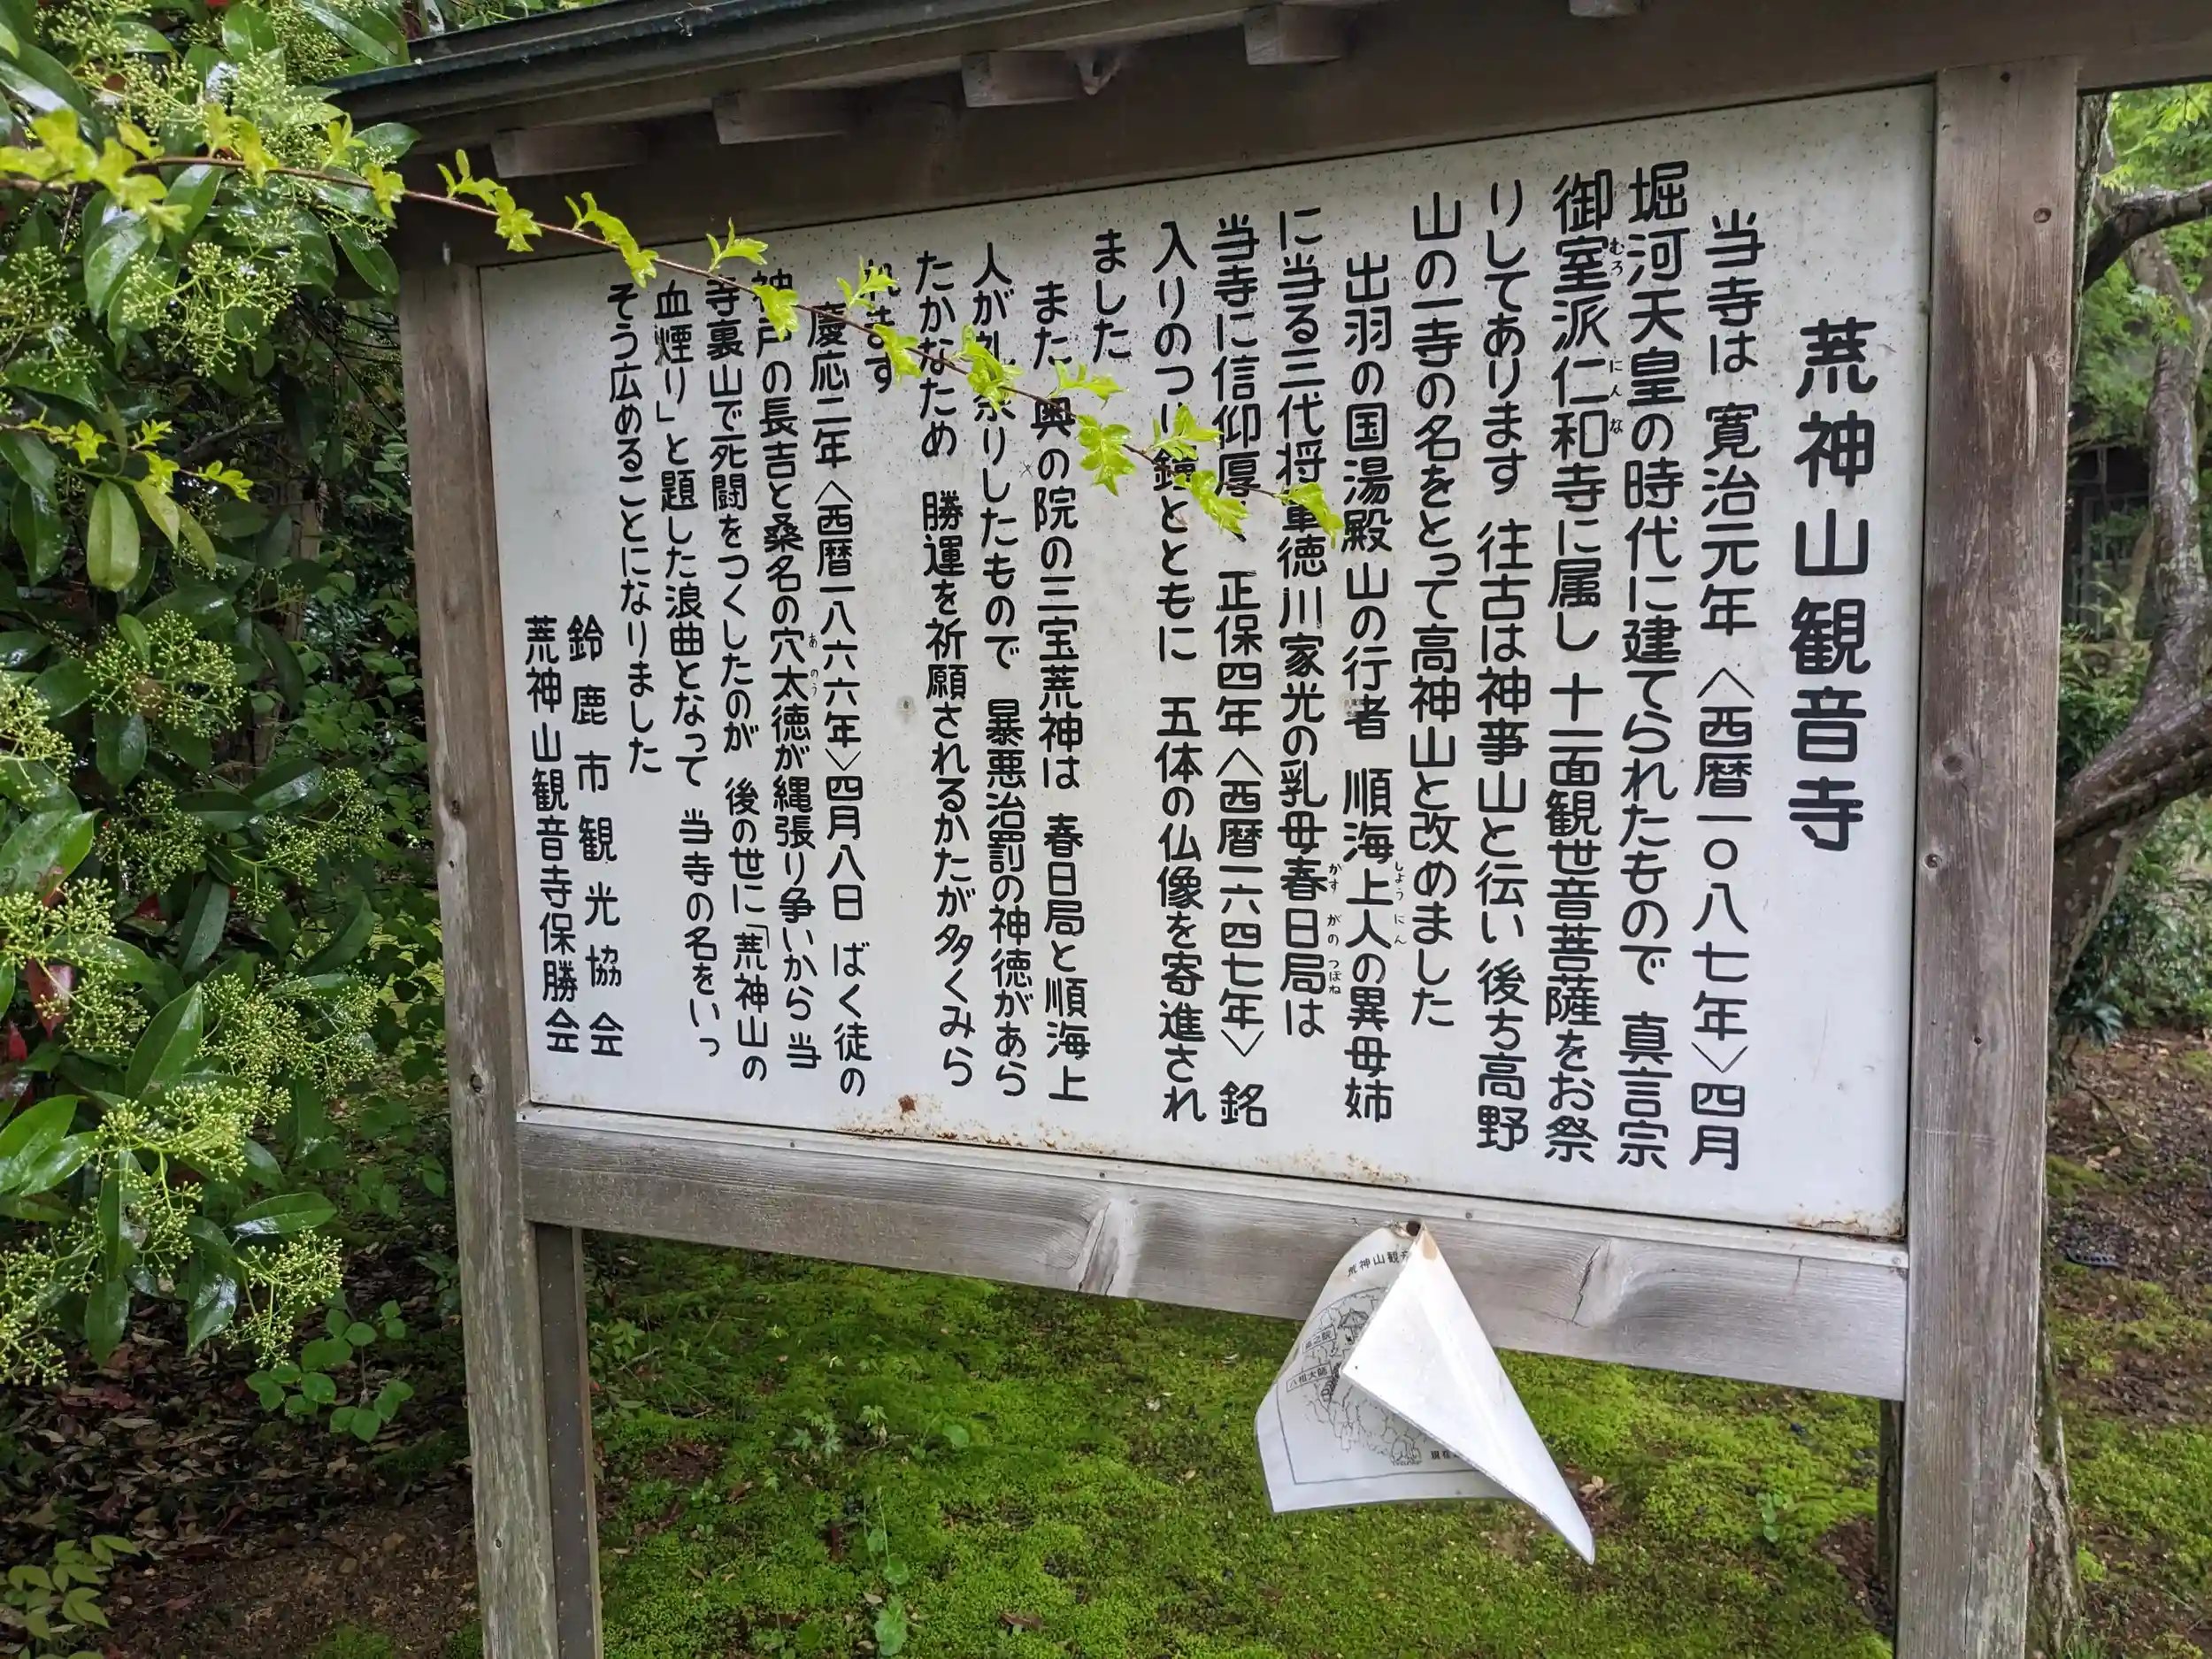 荒神山観音寺
当寺は 寛治元年〈西暦一〇八七年〉四月
堀河天皇の時代に建てられたもので 真言宗
御室派仁和寺に属し 十一面観世音菩薩をお祭
むろ
にんな
りしてあります 往古は神事山と伝い 後ち高野
山の一寺の名をとって高神山と改めました
出羽の国湯殿山の行者 順海上人の異母姉
しょうにん
に当る三代将軍徳川家光の乳母春日局は
かすがのつぼね
当寺に信仰厚く 正保四年〈西暦一六四七年〉銘
入りのつり鐘とともに 五体の仏像を寄進され
ました
また 奥の院の三宝荒神は 春日局と順海上
人が礼祭りしたもので 暴悪治罰の神徳があら
たかなため 勝運を祈願されるかたが多くみら
れます
慶応二年〈西暦一八六六年〉四月八日 ばく徒の
神戸の長吉と桑名の穴太徳が縄張り争いから 当
あのう
寺裏山で死闘をつくしたのが 後の世に「荒神山の
血煙り」と題した浪曲となって 当寺の名をいっ
そう広めることになりました
鈴鹿市観光協会
荒神山観音寺保勝会
荒神山観
八祖大師
現在